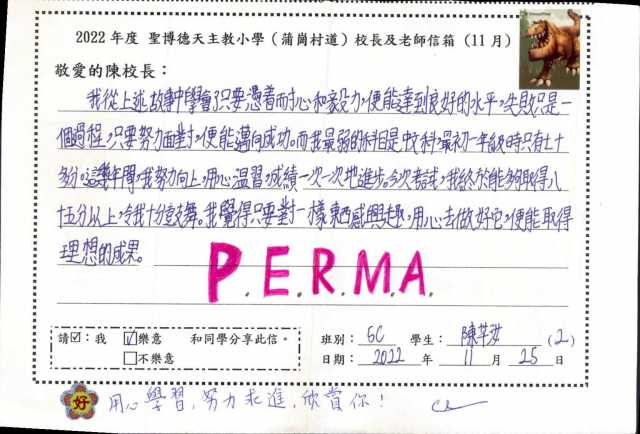 2022 年度 聖博德天主教小學（蒲崗村道）校長及老師信箱（11月）
敬愛的陳校長：
我從上述故事中學會了只要憑着耐心和毅力，便能達到良好的水平。失敗只是一
個過程，只要努力面對，便能邁向成功。而我最弱的科目是中文科，最初一年級時只有七十
多分。這幾年間，我努力向上，用心溫習，成績一次一次地進步。今次考試，我終於能夠取得八
十五分以上，令我十分鼓舞。我覺得只要對一樣東西感興趣，用心去做好它，便能取得
理想的成果。
P.E.R.M.A.
請☑：我 ☑樂意 和同學分享此信。
□不樂意
班別：5C 學生：陳芊汝 (2)
日期：2022 年 11 月 25 日
好 用心學習，努力求進，欣賞你！